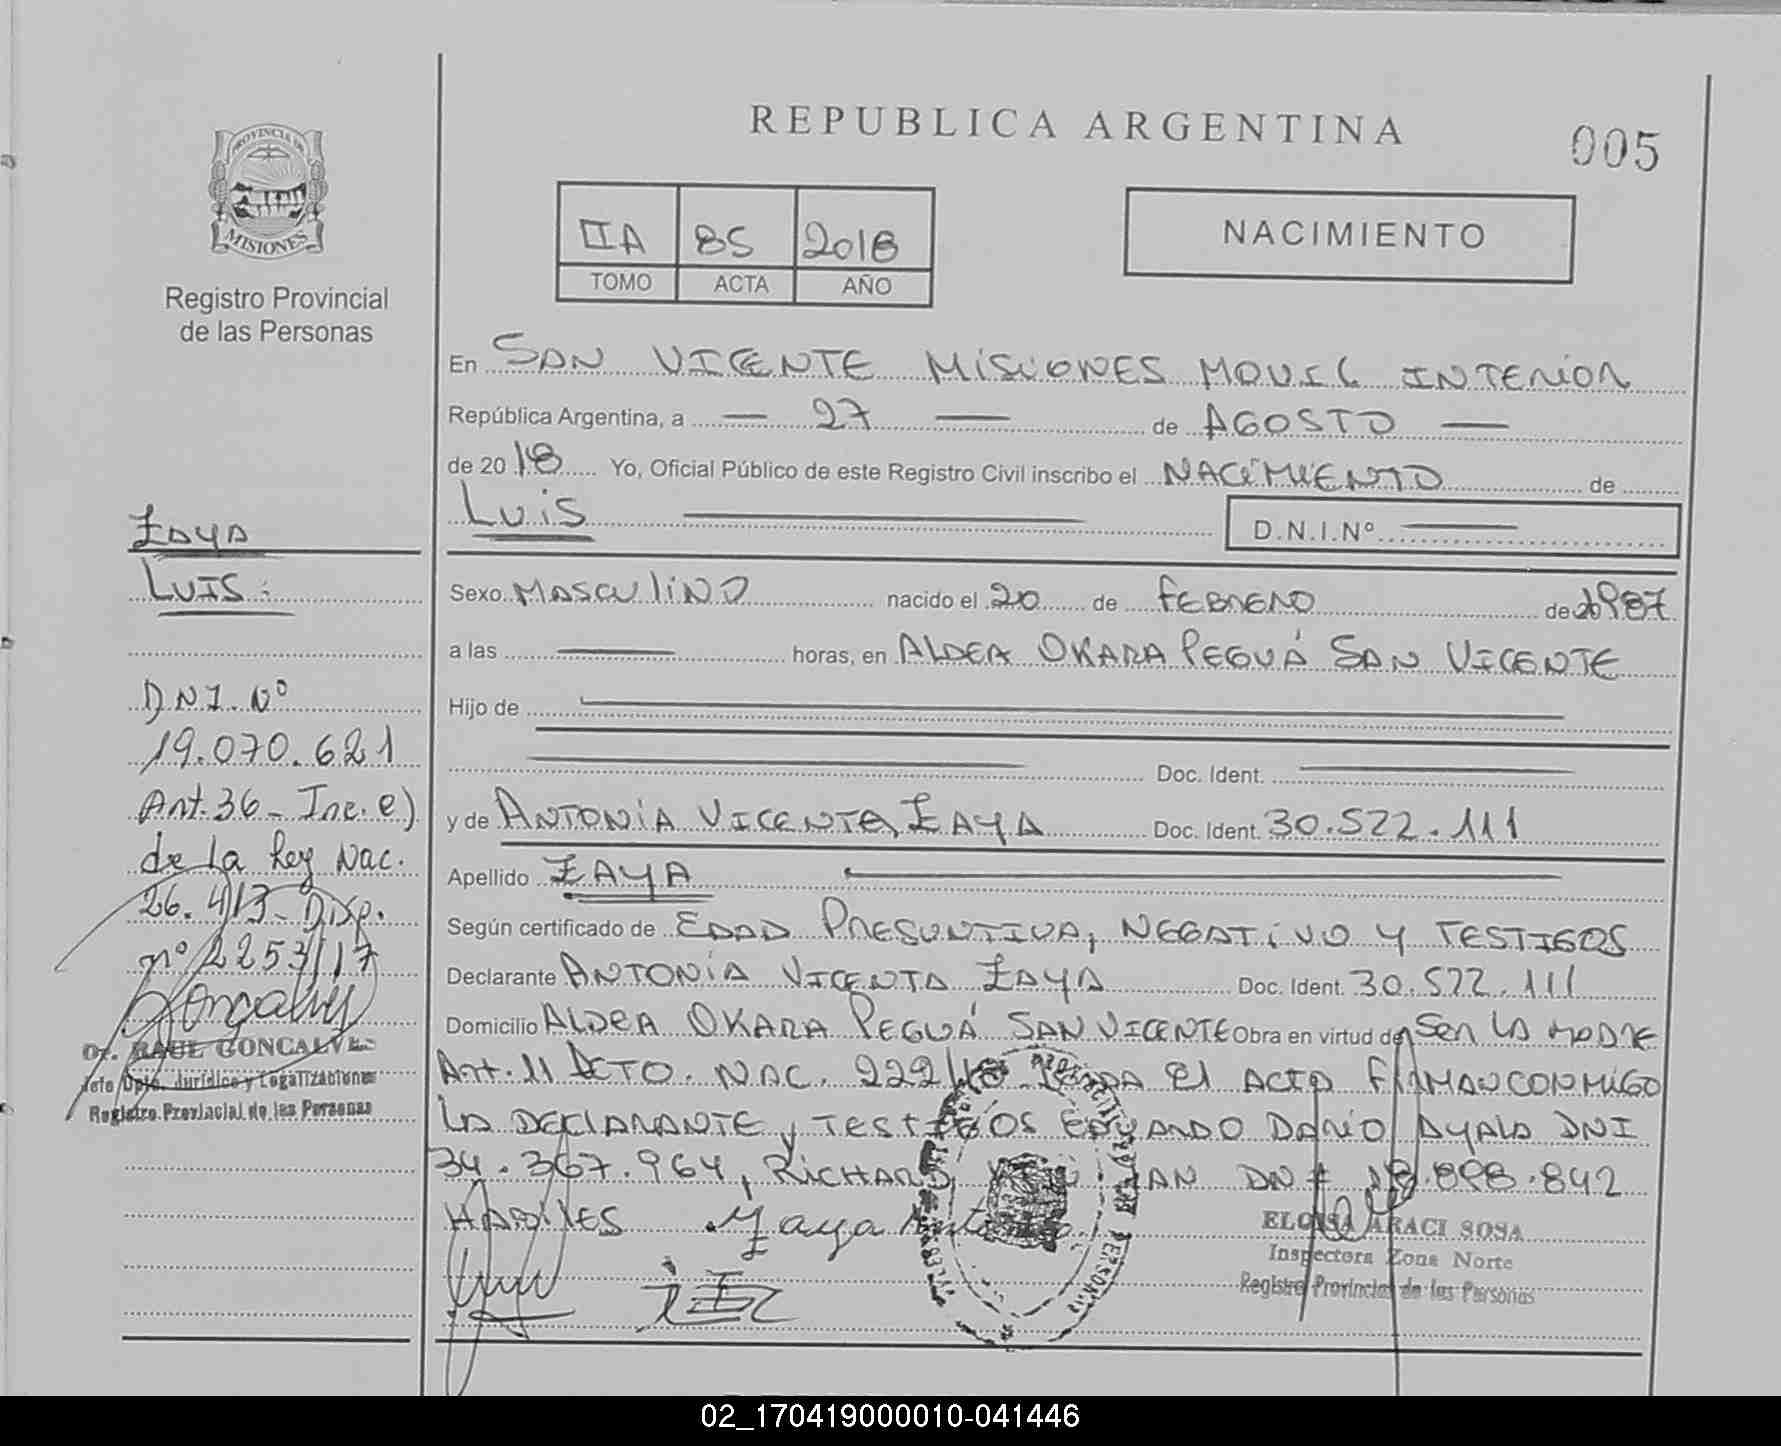 REPUBLICA ARGENTINA
005
PROVINCIA DE
MISIONES
Registro Provincial
de las Personas
IIA 85 2018
TOMO ACTA AÑO
NACIMIENTO
En SAN VICENTE MISIONES MOVIL INTERIOR
República Argentina, a — 27 — de AGOSTO —
de 2018 Yo, Oficial Público de este Registro Civil inscribo el NACIMIENTO de
LUIS D.N.I.Nº
Sexo MASCULINO nacido el 20 de FEBRERO de 1987
a las — horas, en ALDEA OKARA PEGUÁ SAN VICENTE
Hijo de
Doc. Ident.
y de ANTONIA VICENTA ZAYA Doc. Ident. 30.522.111
Apellido ZAYA
Según certificado de EDAD PRESUNTIVA, NEGATIVO Y TESTIGOS
Declarante ANTONIA VICENTA ZAYA Doc. Ident. 30.522.111
Domicilio ALDEA OKARA PEGUÁ SAN VICENTE Obra en virtud de SER LA MADRE
Art. 11 DCTO. NAC. 222/18 El ACTA FIRMAN CONMIGO
LA DECLARANTE y TESTIGOS EDUARDO DARIO AYALA DNI
34.367.964, RICHARD DNI 18.898.842
HABILES Zaya Antonia
ELOISA ARACI SOSA
Inspectora Zona Norte
Registro Provincial de las Personas
ZAYA
LUIS.
DNI. Nº
19.070.621
Art. 36 - Inc. e)
de la Ley Nac.
26.413 - Disp.
nº 2253/17
Goncalves
Dr. RAUL GONCALVES
Jefe Dpto. Jurídico y Legalizaciones
Registro Provincial de las Personas
02_170419000010-041446